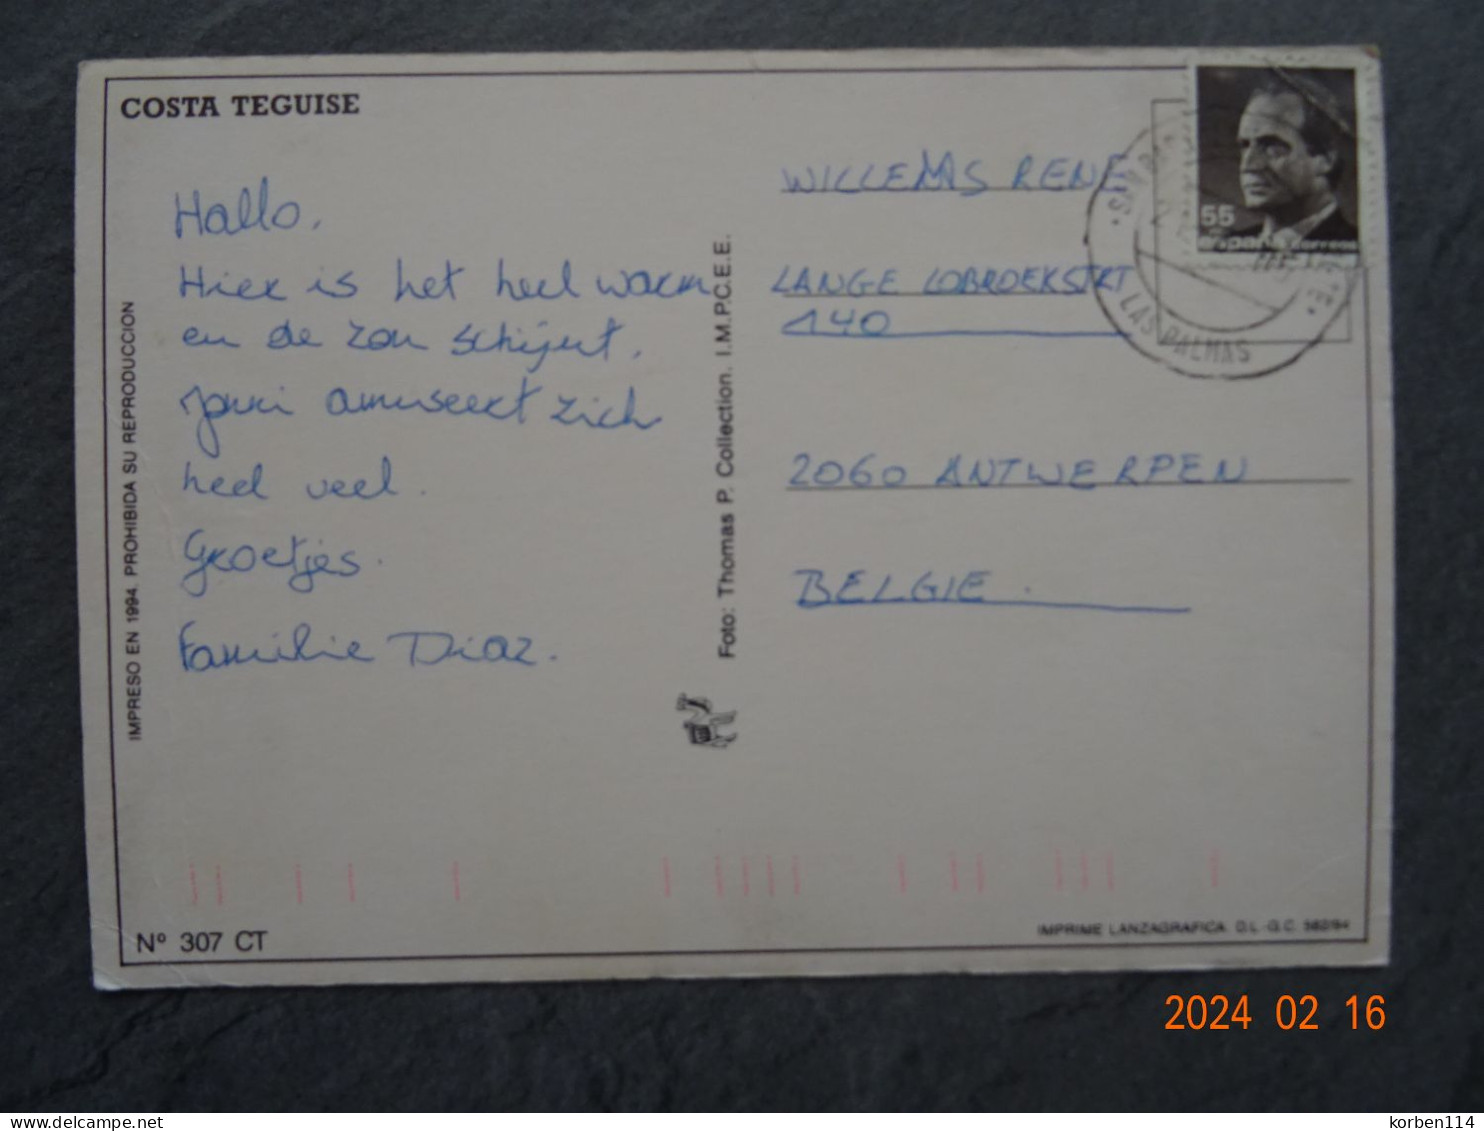 COSTA TEGUISE
Hallo,
Hier is het heel warm
en de zon schijnt.
amuseert zich
heel veel.
Groetjes.
Familie Diaz.
IMPRESO EN 1994. PROHIBIDA SU REPRODUCCION
Foto: Thomas P. Collection. I.M.P.C.E.E.
WILLEMS RENE
LANGE LOBROEKSTRT
140
2060 ANTWERPEN
BELGIE.
55
españa correos
LAS PALMAS
Nº 307 CT
IMPRIME LANZAGRAFICA. D.L.-G.C. 582/94
2024 02 16
korben114